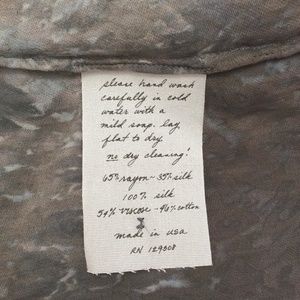 please hand wash
carefully in cold
water with a
mild soap. lay
flat to dry
no dry cleaning!
65% rayon - 35% silk
100% silk
54% viscose - 46% cotton
made in usa
RN 129508